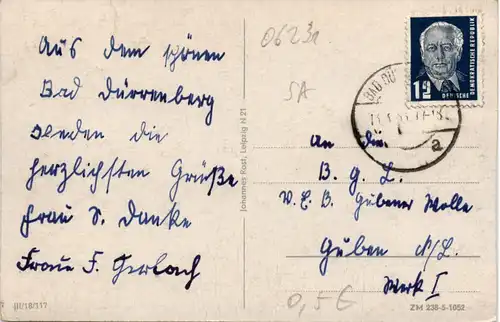 Aus dem schönen
Bad Dürrenberg
senden die
herzlichsten Grüße
Frau S. Danke
Frau F. Gerlach
III/18/117
Johannes Rost, Leipzig N 21
0623a
SA
12
DEUTSCHE DEMOKRATISCHE REPUBLIK
BAD DÜ
a
An die
B. G. L.
V. E. B. Gubener Wolle
Guben N/L.
Werk I
0,5 €
ZM 238-5-1052